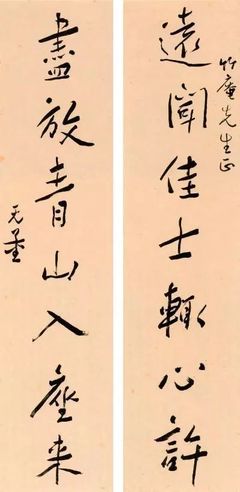 竹庵先生正
遠聞佳士輙心許
盡放青山入座来
无量